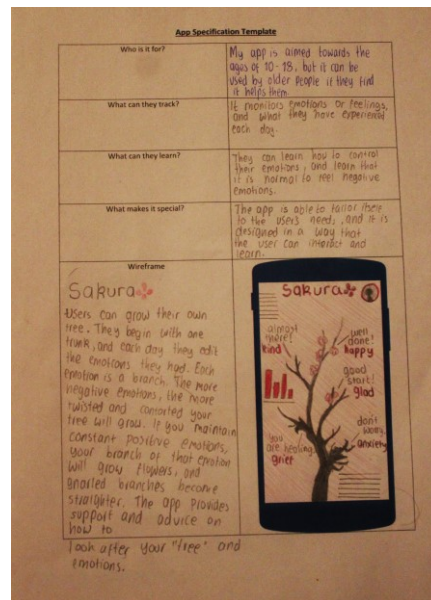 App Specification Template
Who is it for?
My app is aimed towards the
ages of 10-18, but it can be
used by older people if they find
it helps them.
What can they track?
It monitors emotions or feelings,
and what they have experienced
each day.
What can they learn?
They can learn how to control
their emotions, and learn that
it is normal to feel negative
emotions.
What makes it special?
The app is able to tailor itself
to the users needs, and it is
designed in a way that
the user can interact and
learn.
Wireframe
Sakura
Users can grow their own
tree. They begin with one
trunk, and each day they edit
the emotions they had. Each
emotion is a branch. The more
negative emotions, the more
twisted and contorted your
tree will grow. If you maintain
constant positive emotions,
your branch of that emotion
will grow flowers, and
gnarled branches become
straighter. The app provides
support and advice on
how to
look after your "tree" and
emotions.
Sakura
almost
there!
kind
well
done!
happy
good
start!
glad
don't
worry,
anxiety
you
are healing
grief